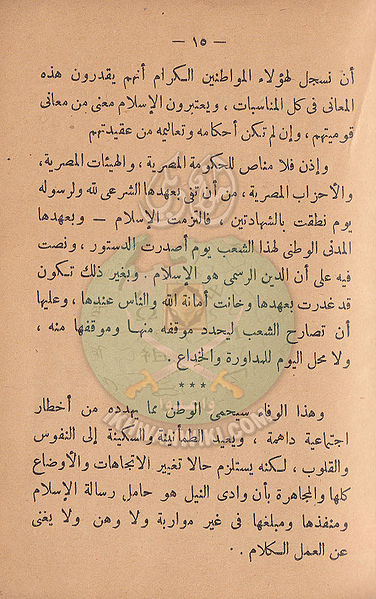 — ١٥ —
أن نسجل لهؤلاء المواطنين الكرام أنهم يقدرون هذه
المعانى فى كل المناسبات ، ويعتبرون الإسلام معنى من معانى
قوميتهم ، وإن لم تكن أحكامه وتعاليمه من عقيدتهم
وإذن فلا مناص للحكومة المصرية ، والهيئات المصرية ،
والأحزاب المصرية ، من أن تفى بعهدها الشرعى لله ولرسوله
يوم نطقت بالشهادتين . فالتزمت الإسلام — وبعهدها
المدنى الوطنى لهذا الشعب يوم أصدرت الدستور ، ونصت
فيه على أن الدين الرسمى هو الإسلام . وبغير ذلك تكون
قد غدرت بعهدها وخانت أمانة الله والناس عندها ، وعليها
أن تصارح الشعب ليحدد موقفه منها وموقفها منه ،
ولا محل اليوم للمداورة والخداع .
***
وهذا الوفاء سيحمى الوطن مما يهدده من أخطار
اجتماعية داهمة ، ويعيد الطمأنينة والسكينة إلى النفوس
والقلوب ، لكنه يستلزم حالا تغيير الاتجاهات والأوضاع
كلها والمجاهرة بأن وادى النيل هو حامل رسالة الإسلام
ومنفذها ومبلغها فى غير مواربة ولا وهن ولا يغنى
عن العمل الكلام . .
IKHWANWIKI.COM